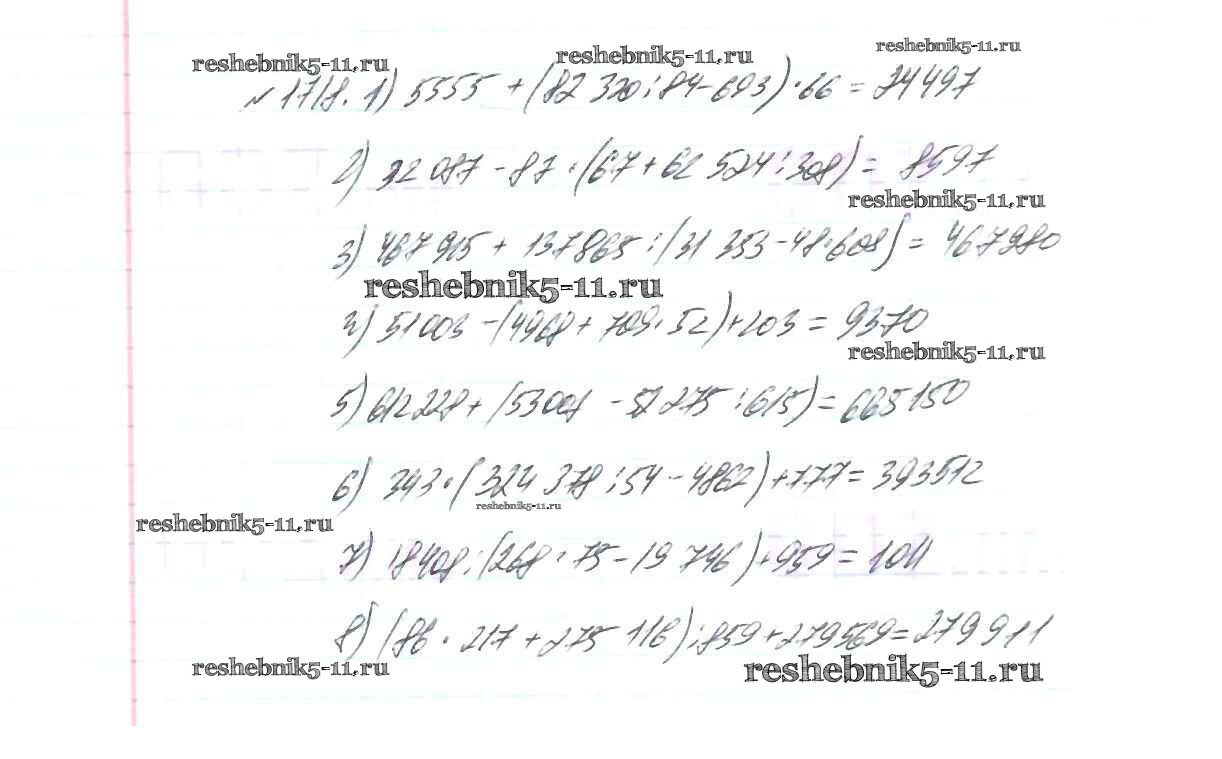 reshebnik5-11.ru reshebnik5-11.ru reshebnik5-11.ru
№1718. 1) 5555 + (82 320 : 84 - 693) · 66 = 24497
2) 32 087 - 87 · (67 + 62 524 : 308) = 8597
reshebnik5-11.ru
3) 467 915 + 137865 : (31 353 - 48·609) = 467980
reshebnik5-11.ru
4) 51003 - (4968 + 709 · 52) + 203 = 9370
reshebnik5-11.ru
5) 612228 + (53007 - 52 275 : 615) = 665150
6) 343 · (324 378 : 54 - 4862) + 777 = 393512
reshebnik5-11.ru
reshebnik5-11.ru
7) 18408 : (268 · 75 - 19 746) + 959 = 1011
8) (86 · 217 + 275 116) : 859 + 279569 = 279 911
reshebnik5-11.ru reshebnik5-11.ru